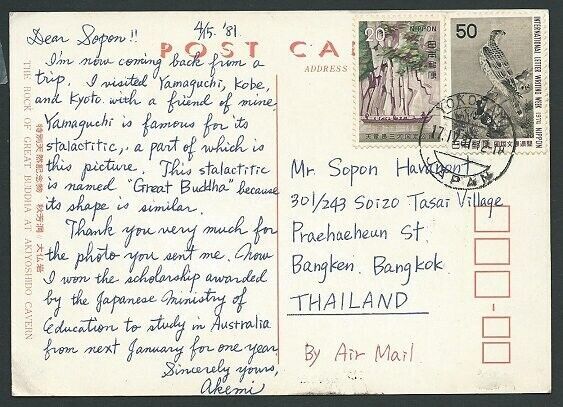 Dear Sopon!!
4/5.'81
I'm now coming back from a
trip. I visited Yamaguchi, Kobe,
and Kyoto with a friend of mine
Yamaguchi is famous for its
stalactitic, a part of which is
this picture. This stalactitic
is named "Great Buddha" because
its shape is similar.
Thank you very much for
the photo you sent me. Now
I won the scholarship awarded
by the Japanese Ministry of
Education to study in Australia
from next January for one year
Sincerely yours,
Akemi
POST CAR
ADDRESS
特別天然記念物 秋芳洞 大仏岩
THE ROCK OF GREAT BUDDHA AT AKIYOSHIDO CAVERN
20
NIPPON
日本郵便
50
INTERNATIONAL LETTER WRITING WEEK 1976 NIPPON
日本郵便
国際文通週間
JAPAN
Mr. Sopon Havanont
301/243 Soizo Tasai Village
Praehaeheun St.
Bangken. Bangkok
THAILAND
By Air Mail